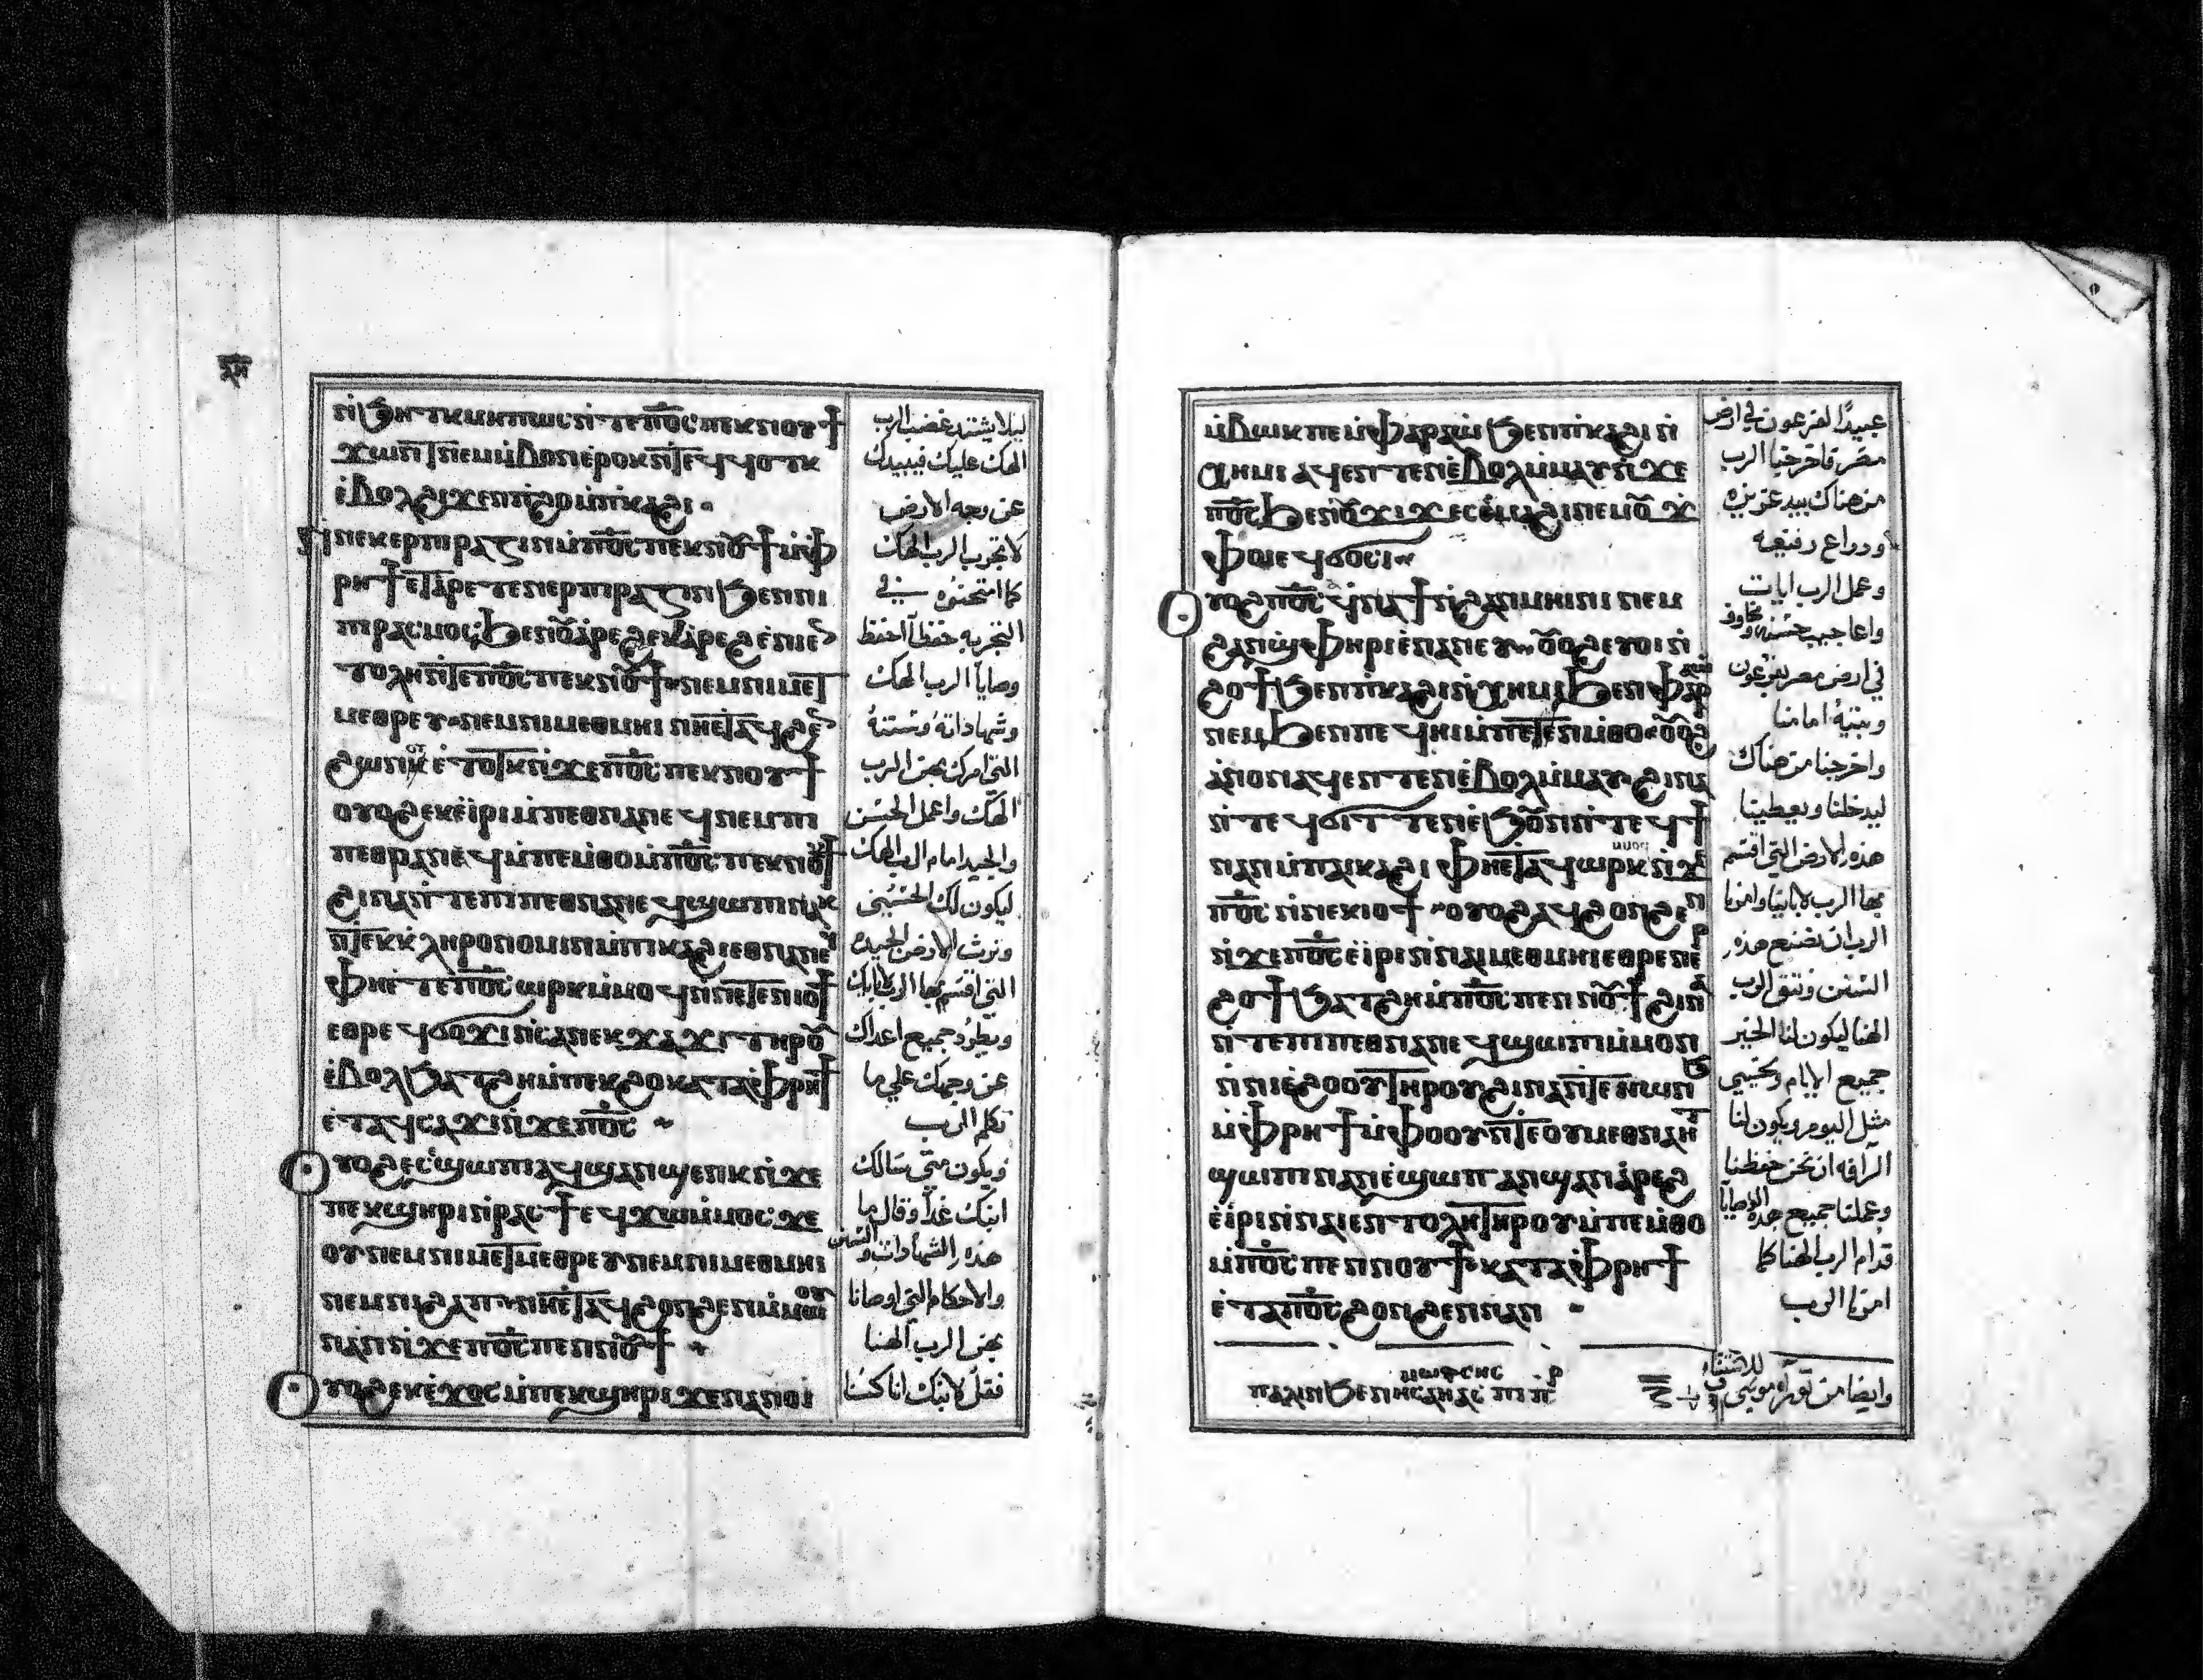 ⲛ̀ϧⲏⲧⲕ ⲙⲏⲡⲱⲥ ⲛ̀ⲧⲉ ⲡⲟ̅ⲥ̅ ⲡⲉⲕⲛⲟⲩϯ
ϫⲱⲛⲧ ⲛⲉⲙⲙ̀ⲃⲟⲛ ⲉⲣⲟⲕ ⲛ̀ⲧⲉϥϥⲟⲧⲕ
ⲉ̀ⲃⲟⲗ ϩⲓϫⲉⲛ ⲡϩⲟ ⲙ̀ⲡⲕⲁϩⲓ
ⲛ̀ⲛⲉⲕⲉⲣⲡⲓⲣⲁⲍⲓⲛ ⲙ̀ⲡⲟ̅ⲥ̅ ⲡⲉⲕⲛⲟⲩϯ ⲙ̀ⲫ
ⲣⲏϯ ⲉⲧⲁⲣⲉⲧⲉⲛⲉⲣⲡⲓⲣⲁⲍⲓⲛ ϧⲉⲛ ⲡⲓ
ⲡⲓⲣⲁⲥⲙⲟⲥ ϧⲉⲛ ⲟⲩⲁⲣⲉϩ ⲉⲕⲁ̀ⲣⲉϩ ⲉ̀ⲛⲓⲉⲛ
ⲧⲟⲗⲏ ⲛ̀ⲧⲉ ⲡⲟ̅ⲥ̅ ⲡⲉⲕⲛⲟⲩϯ ⲛⲉⲙ ⲛⲓⲙⲉⲧ
ⲙⲉⲑⲣⲉⲩ ⲛⲉⲙ ⲛⲓⲙⲉⲑⲙⲏⲓ ⲛⲏⲉⲧⲁϥϩⲉⲛ
ϩⲱⲛⲕ ⲉ̀ⲧⲟⲧⲕ ⲛ̀ϫⲉ ⲡⲟ̅ⲥ̅ ⲡⲉⲕⲛⲟⲩϯ
ⲟⲩⲟϩ ⲉⲕⲉ̀ⲓⲣⲓ ⲙ̀ⲡⲉⲑⲛⲁⲛⲉϥ ⲛⲉⲙ ⲡⲓ
ⲡⲉⲑⲣⲁⲛⲉϥ ⲙ̀ⲡⲉⲙⲑⲟ ⲙ̀ⲡⲟ̅ⲥ̅ ⲡⲉⲕⲛⲟⲩϯ
ϩⲓⲛⲁ ⲛ̀ⲧⲉ ⲡⲓⲡⲉⲑⲛⲁⲛⲉϥ ϣⲱⲡⲓ ⲛⲁⲕ
ⲛ̀ⲧⲉⲕⲕ̀ⲗⲏⲣⲟⲛⲟⲙⲓⲛ ⲙ̀ⲡⲓⲕⲁϩⲓ ⲉⲑⲛⲁⲛⲉϥ
ⲫⲏⲉ̀ⲧⲉ ⲡⲟ̅ⲥ̅ ⲱⲣⲕ ⲙ̀ⲙⲟϥ ⲛ̀ⲛⲉⲧⲉⲛⲓⲟϯ
ⲉⲑⲣⲉϥϭⲟϫⲓ ⲛ̀ⲥⲁ ⲛⲉⲕϫⲁϫⲓ ⲧⲏⲣⲟⲩ
ⲉ̀ⲃⲟⲗ ϧⲁⲧϩⲏ ⲙ̀ⲡⲉⲕϩⲟ ⲕⲁⲧⲁ ⲫⲣⲏϯ
ⲉ̀ⲧⲁϥⲥⲁϫⲓ ⲛ̀ϫⲉ ⲡⲟ̅ⲥ̅
ⲟⲩⲟϩ ⲉⲥⲉ̀ϣⲱⲡⲓ ⲁϥϣⲁⲛϣⲉⲛⲕ ⲛ̀ϫⲉ
ⲡⲉⲕϣⲏⲣⲓ ⲛ̀ⲣⲁⲥϯ ⲉϥϫⲱ ⲙ̀ⲙⲟⲥ ϫⲉ
ⲟⲩ ⲛⲉⲙ ⲛⲓⲙⲉⲧⲙⲉⲑⲣⲉⲩ ⲛⲉⲙ ⲛⲓⲙⲉⲑⲙⲏⲓ
ⲛⲉⲙ ⲛⲓϩⲁⲡ ⲛⲏⲉⲧⲁϥϩⲟⲛϩⲉⲛ ⲙ̀ⲙⲱⲟⲩ
ⲛⲁⲛ ⲛ̀ϫⲉ ⲡⲟ̅ⲥ̅ ⲡⲉⲛⲛⲟⲩϯ
ⲟⲩⲟϩ ⲉⲕⲉ̀ϫⲟⲥ ⲙ̀ⲡⲉⲕϣⲏⲣⲓ ϫⲉ ⲛⲁⲛⲟⲓ
ليلا يشتد غضب الرب
الهك عليك فيبيدك
عن وجه الارض
لا تجرب الرب الهك
كما امتحنتوه في
التجربه حفظاً احفظ
وصايا الرب الهك
وشهاداته وسننه
التي امرك بهن الرب
الهك واعمل الحسن
والجيد امام الرب الهك
ليكون لك الحسني
وترث الارض الجيده
التي اقسم بها الرب لابايك
ويطرد جميع اعداك
عن وجهك علي ما
تكلم الرب
ويكون متي سالك
ابنك غداً وقال ما
هذه الشهادات والسنن
والاحكام التي اوصانا
بهن الرب الهنا
فقل لابنك انا كنا
ⲙ̀ⲃⲱⲕ ⲡⲉ ⲙ̀ⲫⲁⲣⲁⲱ̀ ϧⲉⲛ ⲡⲕⲁϩⲓ ⲛ̀
ⲭⲏⲙⲓ ⲁϥⲉⲛⲧⲉⲛ ⲉ̀ⲃⲟⲗ ⲙ̀ⲙⲁⲩ ⲛ̀ϫⲉ
ⲡⲟ̅ⲥ̅ ϧⲉⲛ ⲟⲩϫⲓϫ ⲉⲥⲁ̀ⲙⲁϩⲓ ⲛⲉⲙ ⲟⲩϫ
ⲫⲟⲓ ⲉϥϭⲟⲥⲓ
ⲟⲩⲟϩ ⲡⲟ̅ⲥ̅ ϥ̀ⲛⲁϯ ⲛ̀ϩⲁⲛⲙⲏⲓⲛⲓ ⲛⲉⲙ
ϩⲁⲛϣⲫⲏⲣⲓ ⲉ̀ⲛⲁⲛⲉⲩ ⲟⲩⲟϩ ⲉⲩⲟⲓ ⲛ̀
ϩⲟϯ ϧⲉⲛ ⲡⲕⲁϩⲓ ⲛ̀ⲭⲏⲙⲓ ϧⲉⲛ ⲫⲁⲣⲁⲱ
ⲛⲉⲙ ϧⲉⲛ ⲡⲉϥⲏⲓ ⲙ̀ⲡⲉⲧⲉⲛⲙⲑⲟ ⲟⲩⲟϩ
ⲁ̀ⲛⲟⲛ ⲁϥⲉⲛⲧⲉⲛ ⲉ̀ⲃⲟⲗ ⲙ̀ⲙⲁⲩ ϩⲓⲛⲁ
ⲛ̀ⲧⲉϥϭⲓⲧⲧⲉⲛ ⲉ̀ϧⲟⲩⲛ ⲛ̀ⲧⲉϥϯ
ⲛⲁⲛ ⲙ̀ⲡⲁⲓⲕⲁϩⲓ ⲫⲏⲉⲧⲁϥⲱⲣⲕ ⲙ̀ⲙⲟϥ ⲛ̀ϫⲉ
ⲡⲟ̅ⲥ̅ ⲛ̀ⲛⲉⲛⲓⲟϯ ⲟⲩⲟϩ ⲁϥϩⲟⲛϩⲉⲛ
ⲛ̀ϫⲉ ⲡⲟ̅ⲥ̅ ⲉ̀ⲓⲣⲓ ⲛ̀ⲛⲁⲓⲙⲉⲑⲙⲏⲓ ⲉⲑⲣⲉⲛⲉⲣ
ϩⲟϯ ϧⲁⲧϩⲏ ⲙ̀ⲡⲟ̅ⲥ̅ ⲡⲉⲛⲛⲟⲩϯ ϩⲓⲛⲁ
ⲛ̀ⲧⲉ ⲡⲓⲡⲉⲑⲛⲁⲛⲉϥ ϣⲱⲡⲓ ⲙ̀ⲙⲟⲛ
ⲛ̀ⲛⲓⲉ̀ϩⲟⲟⲩ ⲧⲏⲣⲟⲩ ϩⲓⲛⲁ ⲛ̀ⲧⲉⲛⲱⲛϧ
ⲙ̀ⲫⲣⲏϯ ⲙ̀ⲫⲟⲟⲩ ⲛ̀ⲧⲉ ⲟⲩⲙⲉⲑⲛⲁⲏⲧ
ϣⲱⲡⲓ ⲛⲁⲛ ⲉ̀ϣⲱⲡ ⲁⲛϣⲁⲛⲁ̀ⲣⲉϩ
ⲉ̀ⲓⲣⲓ ⲛ̀ⲛⲁⲓⲉⲛⲧⲟⲗⲏ ⲧⲏⲣⲟⲩ ⲙ̀ⲡⲉⲙⲑⲟ
ⲙ̀ⲡⲟ̅ⲥ̅ ⲡⲉⲛⲛⲟⲩϯ ⲕⲁⲧⲁ ⲫⲣⲏϯ
ⲉ̀ⲧⲁ ⲡⲟ̅ⲥ̅ ϩⲟⲛϩⲉⲛ ⲛⲁⲛ
ⲡⲁⲗⲓⲛ ϧⲉⲛ ⲏⲥⲁⲏⲁⲥ ⲡⲓⲡⲣ
عبيداً لفرعون في ارض
مصر فاخرجنا الرب
من هناك بيد عزيزه
وذراع رفيعه
وعمل الرب ايات
واعاجيب حسنه ومخاوف
في ارض مصر بفرعون
وبيته امامنا
واخرجنا من هناك
ليدخلنا ويعطينا
هذه الارض التي اقسم
بها الرب لاباينا وامرنا
الرب ان نصنع هذه
السنن ونتق الرب
الهنا ليكون لنا الخير
جميع الايام ونحيي
مثل اليوم ويكون لنا
الرافه ان نحن حفظنا
وعملنا جميع هذه الوصايا
قدام الرب الهنا كما
امرنا الرب
وايضا من توراه موسي